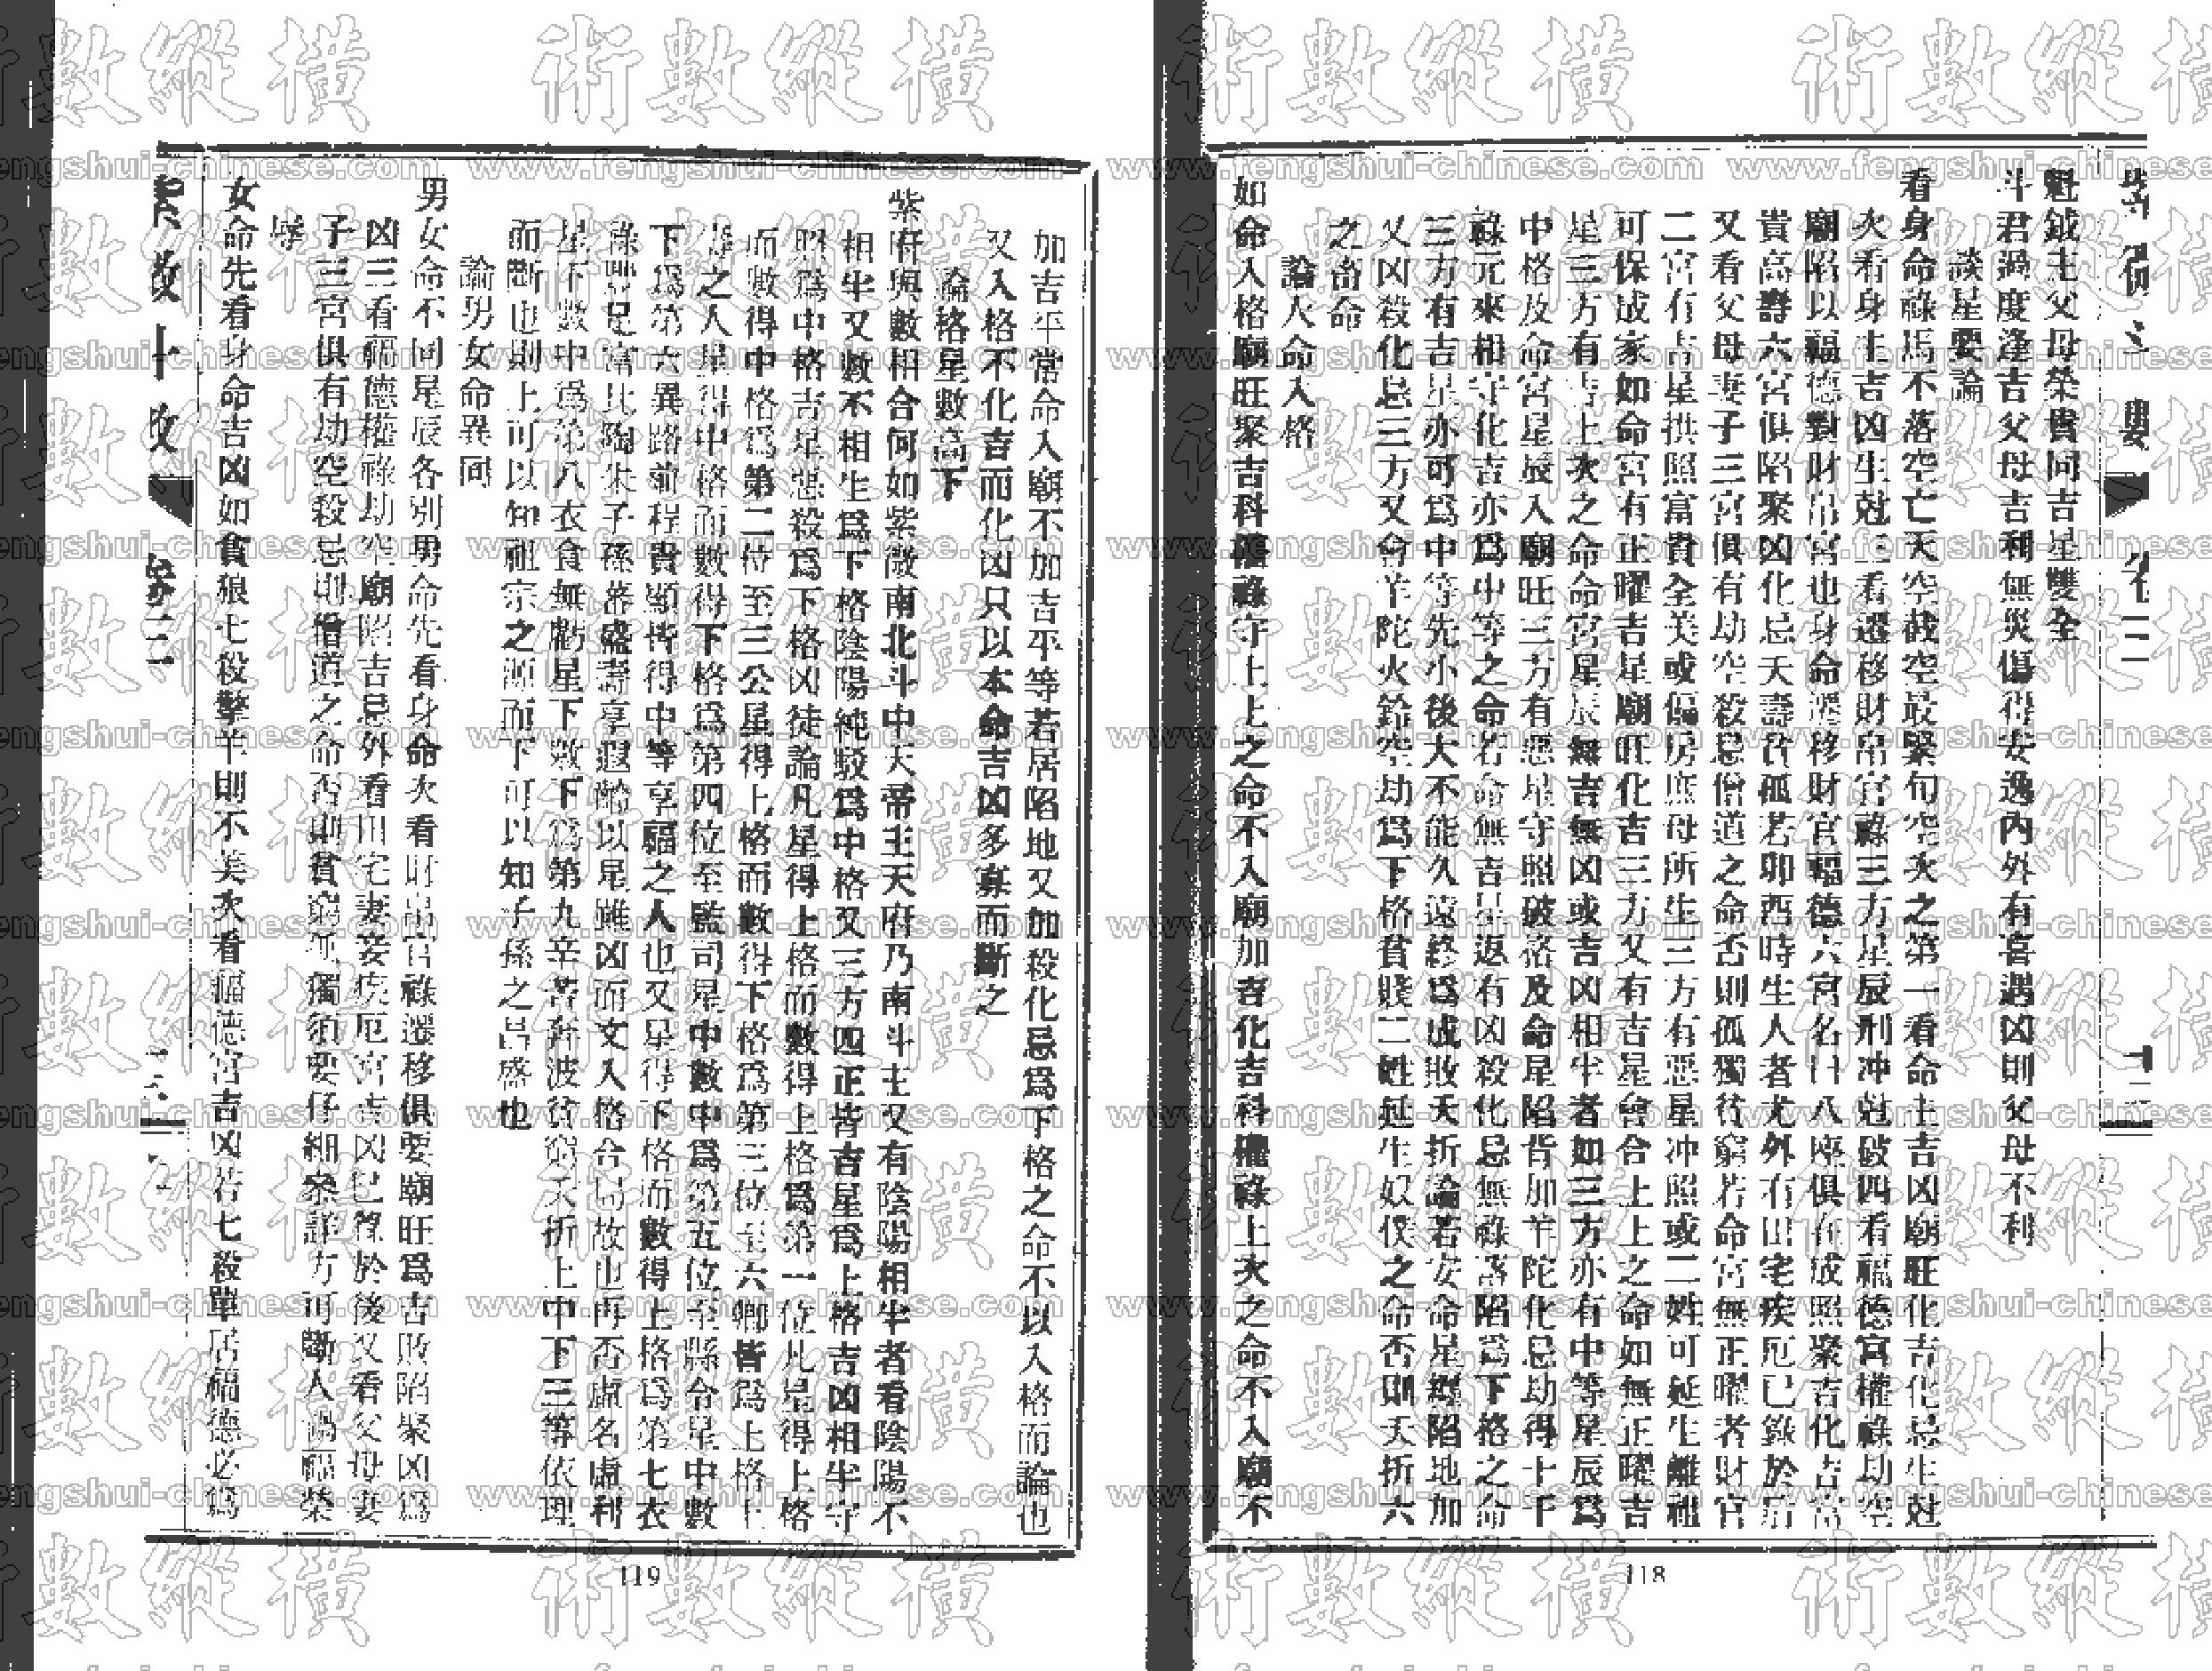 魁鉞主父母榮貴同吉星雙全
斗君過度逢吉父母吉利無災傷得安逸內外有喜遇凶則父母不利
談星要論
看身命祿馬不落空亡天空截空最緊旬空次之第一看命主吉凶廟旺化吉化忌生尅
次看身主吉凶生尅三看遷移財帛官祿三方星辰刑冲尅破四看福德宮權祿劫空
廟陷以福德對財帛宮也身命遷移財官福德六宮名曰八座俱在成照聚吉化吉富
貴高壽六宮俱陷聚凶化忌夭壽貧孤若卯酉時生人者尤外有田宅疾厄已錄於后
又看父母妻子三宮俱有劫空殺忌僧道之命否則孤獨貧窮若命宮無正曜者財官
二宮有吉星拱照富貴全美或偏房庶母所生三方有惡星冲照或二姓可延生離祖
可保成家如命宮有正曜吉星廟旺化吉三方又有吉星會合上上之命如無正曜吉
星三方有吉上次之命命宮星辰無吉無凶或吉凶相半者如三方亦有中等星辰為
中格及命宮星辰入廟旺三方有惡星守照破格及命星陷背加羊陀化忌劫得十干
祿元來相守化吉亦為中等之命若命無吉星返有凶殺化忌無祿落陷為下格之命
三方有吉星亦可為中等先小後大不能久遠終為成敗夭折論若女命星纏陷地加
又凶殺化忌三方又會羊陀火鈴空劫為下格貧賤二姓延生奴僕之命否則夭折六
之畜命
論人命入格
如命入格廟旺聚吉科權祿守上上之命不入廟加吉化吉科權祿上次之命不入廟不
加吉平常命入廟不加吉平等若居陷地又加殺化忌為下格之命不以入格而論也
又入格不化吉而化凶只以本命吉凶多寡而斷之
論格星數高下
紫府與數相合何如紫微南北斗中天帝主天府乃南斗主又有陰陽相半者看陰陽不
相半又數不相生為下格陰陽純駁為中格又三方四正皆吉星為上格吉凶相半守
照為中格吉星惡殺為下格凶徒論凡星得上格而數得上格為第一位凡星得上格
而數得中格為第二位至三公星得上格而數得下格為第三位至六卿皆為上格上
壽之人星得中格而數得下格為第四位至監司星中數中為第五位至縣令星中數
下為第六異路前程貴顯皆得中等享福之人也又星得下格而數得上格為第七衣
祿豐足富比陶朱子孫蕃盛壽享遐齡以星雖凶而文人格合局故也再否虛名虛利
星下數中為第八衣食無虧星下數下為第九辛苦奔波貧窮夭折上中下三等依理
而斷也則上可以知祖宗之源而下可以知子孫之昌盛也
論男女命異同
男女命不同星辰各別男命先看身命次看財帛官祿遷移俱要廟旺為吉敗陷聚凶為
凶三看福德權祿劫空廟陷吉忌外看田宅妻妾疾厄宮吉凶已算於後又看父母妻
子三宮俱有劫空殺忌則僧道之命否則貧窮孤獨須要仔細察詳方可斷人禍福榮
辱
女命先看身命吉凶如貪狼七殺擎羊則不美次看福德宮吉凶若七殺單居福德必為
118
119